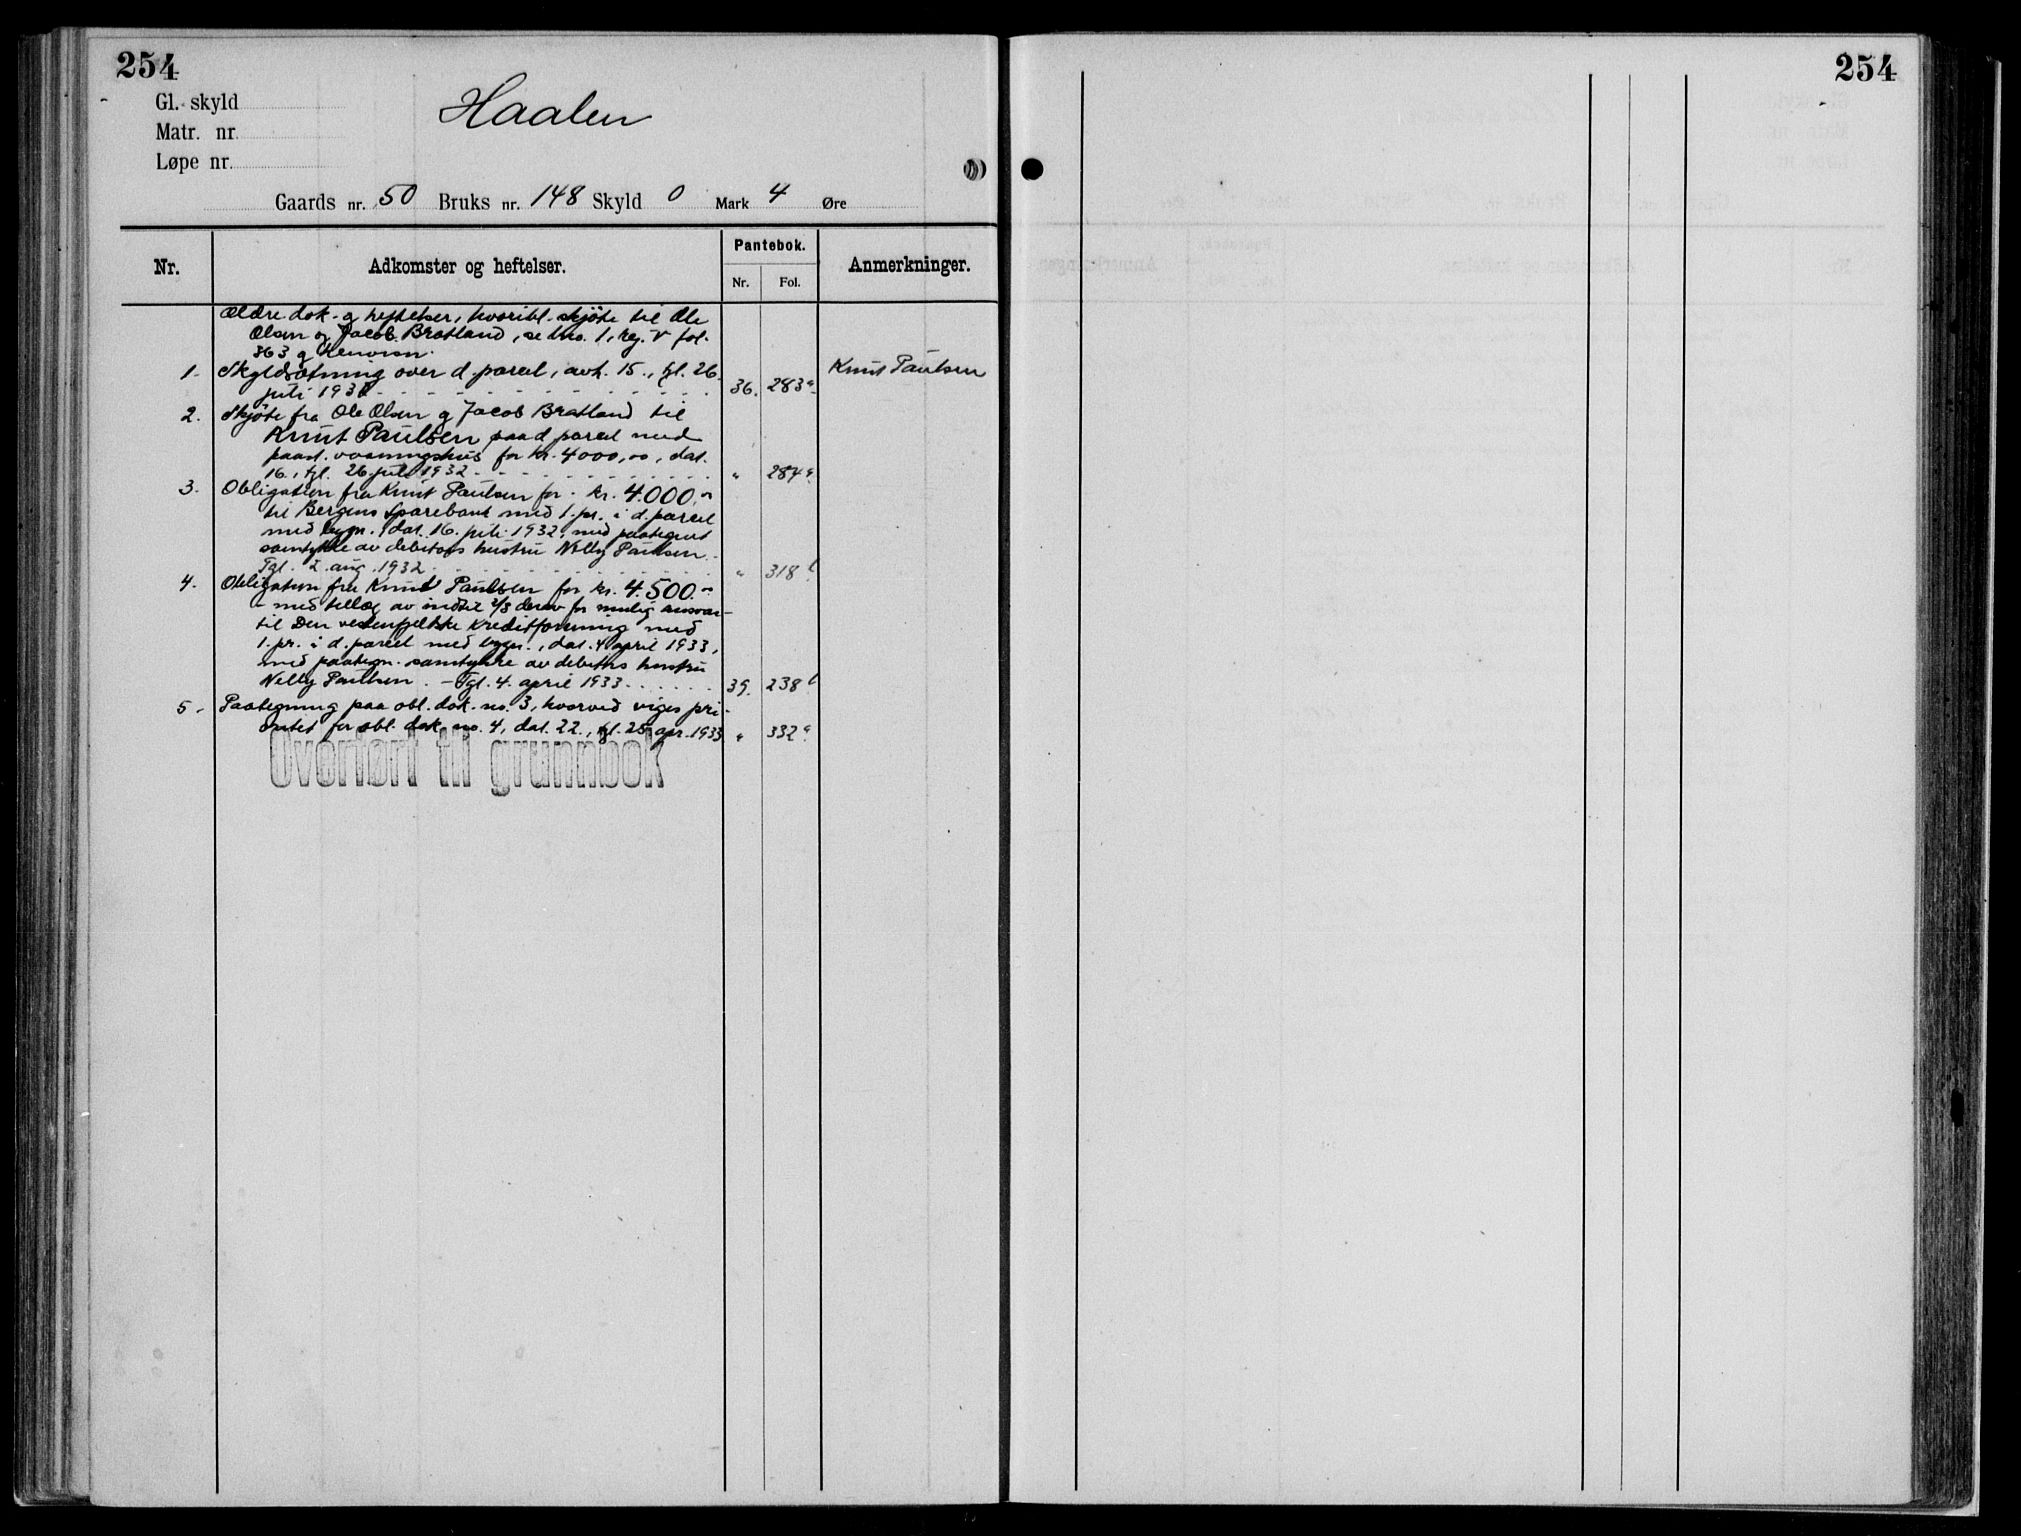 254
254
Gl. skyld
Haalen
Matr. nr.
Løpe nr.
Gaards nr. 50 Bruks nr. 148 Skyld 0 Mark 4 Øre
Nr. Adkomster og heftelser. Pantebok. Anmerkninger.
Nr. Fol.
Ældre dok. og heftelser, hvoribl. skjöte til Ole
Olsen og Jacob Bratland, se bno. 1, reg. V fol.
363 g
1. Skyldsætning over d. parcel, avh. 15., tgl. 26. Knut Paulsen
juli 1932 36. 283a
2. Skjöte fra Ole Olsen g Jacob Bratland til
Knut Paulsen paa d. parcel med
paast. vaaningshus for kr. 4000,00, dat.
16., tgl. 26. juli 1932 " 284a
3. Obligation fra Knut Paulsen for kr. 4.000,-
til Bergens Sparebank med 1. pr. i d. parcel
med bygn., dat. 16. juli 1932, med paategnet
samtykke av debitors hustru Nelly Paulsen.
Tgl. 2. aug. 1932 " 318b
4. Obligation fra Knut Paulsen for kr. 4.500.-
- med tillæg av indtil 2/3 derav for mulig ansvar -
til Den vestenfjeldske Kreditforening med
1. pr. i d. parcel med bygn., dat. 4 april 1933,
med paategn. samtykke av debitors hustru
Nelly Paulsen. - Tgl. 4. april 1933 39. 238b
5. Paategning paa obl. dok. no. 3, hvorved viges pri-
oritet for obl. dok. no. 4, dat. 22., tgl. 25. apr. 1933 " 332a
Overført til grunnbok